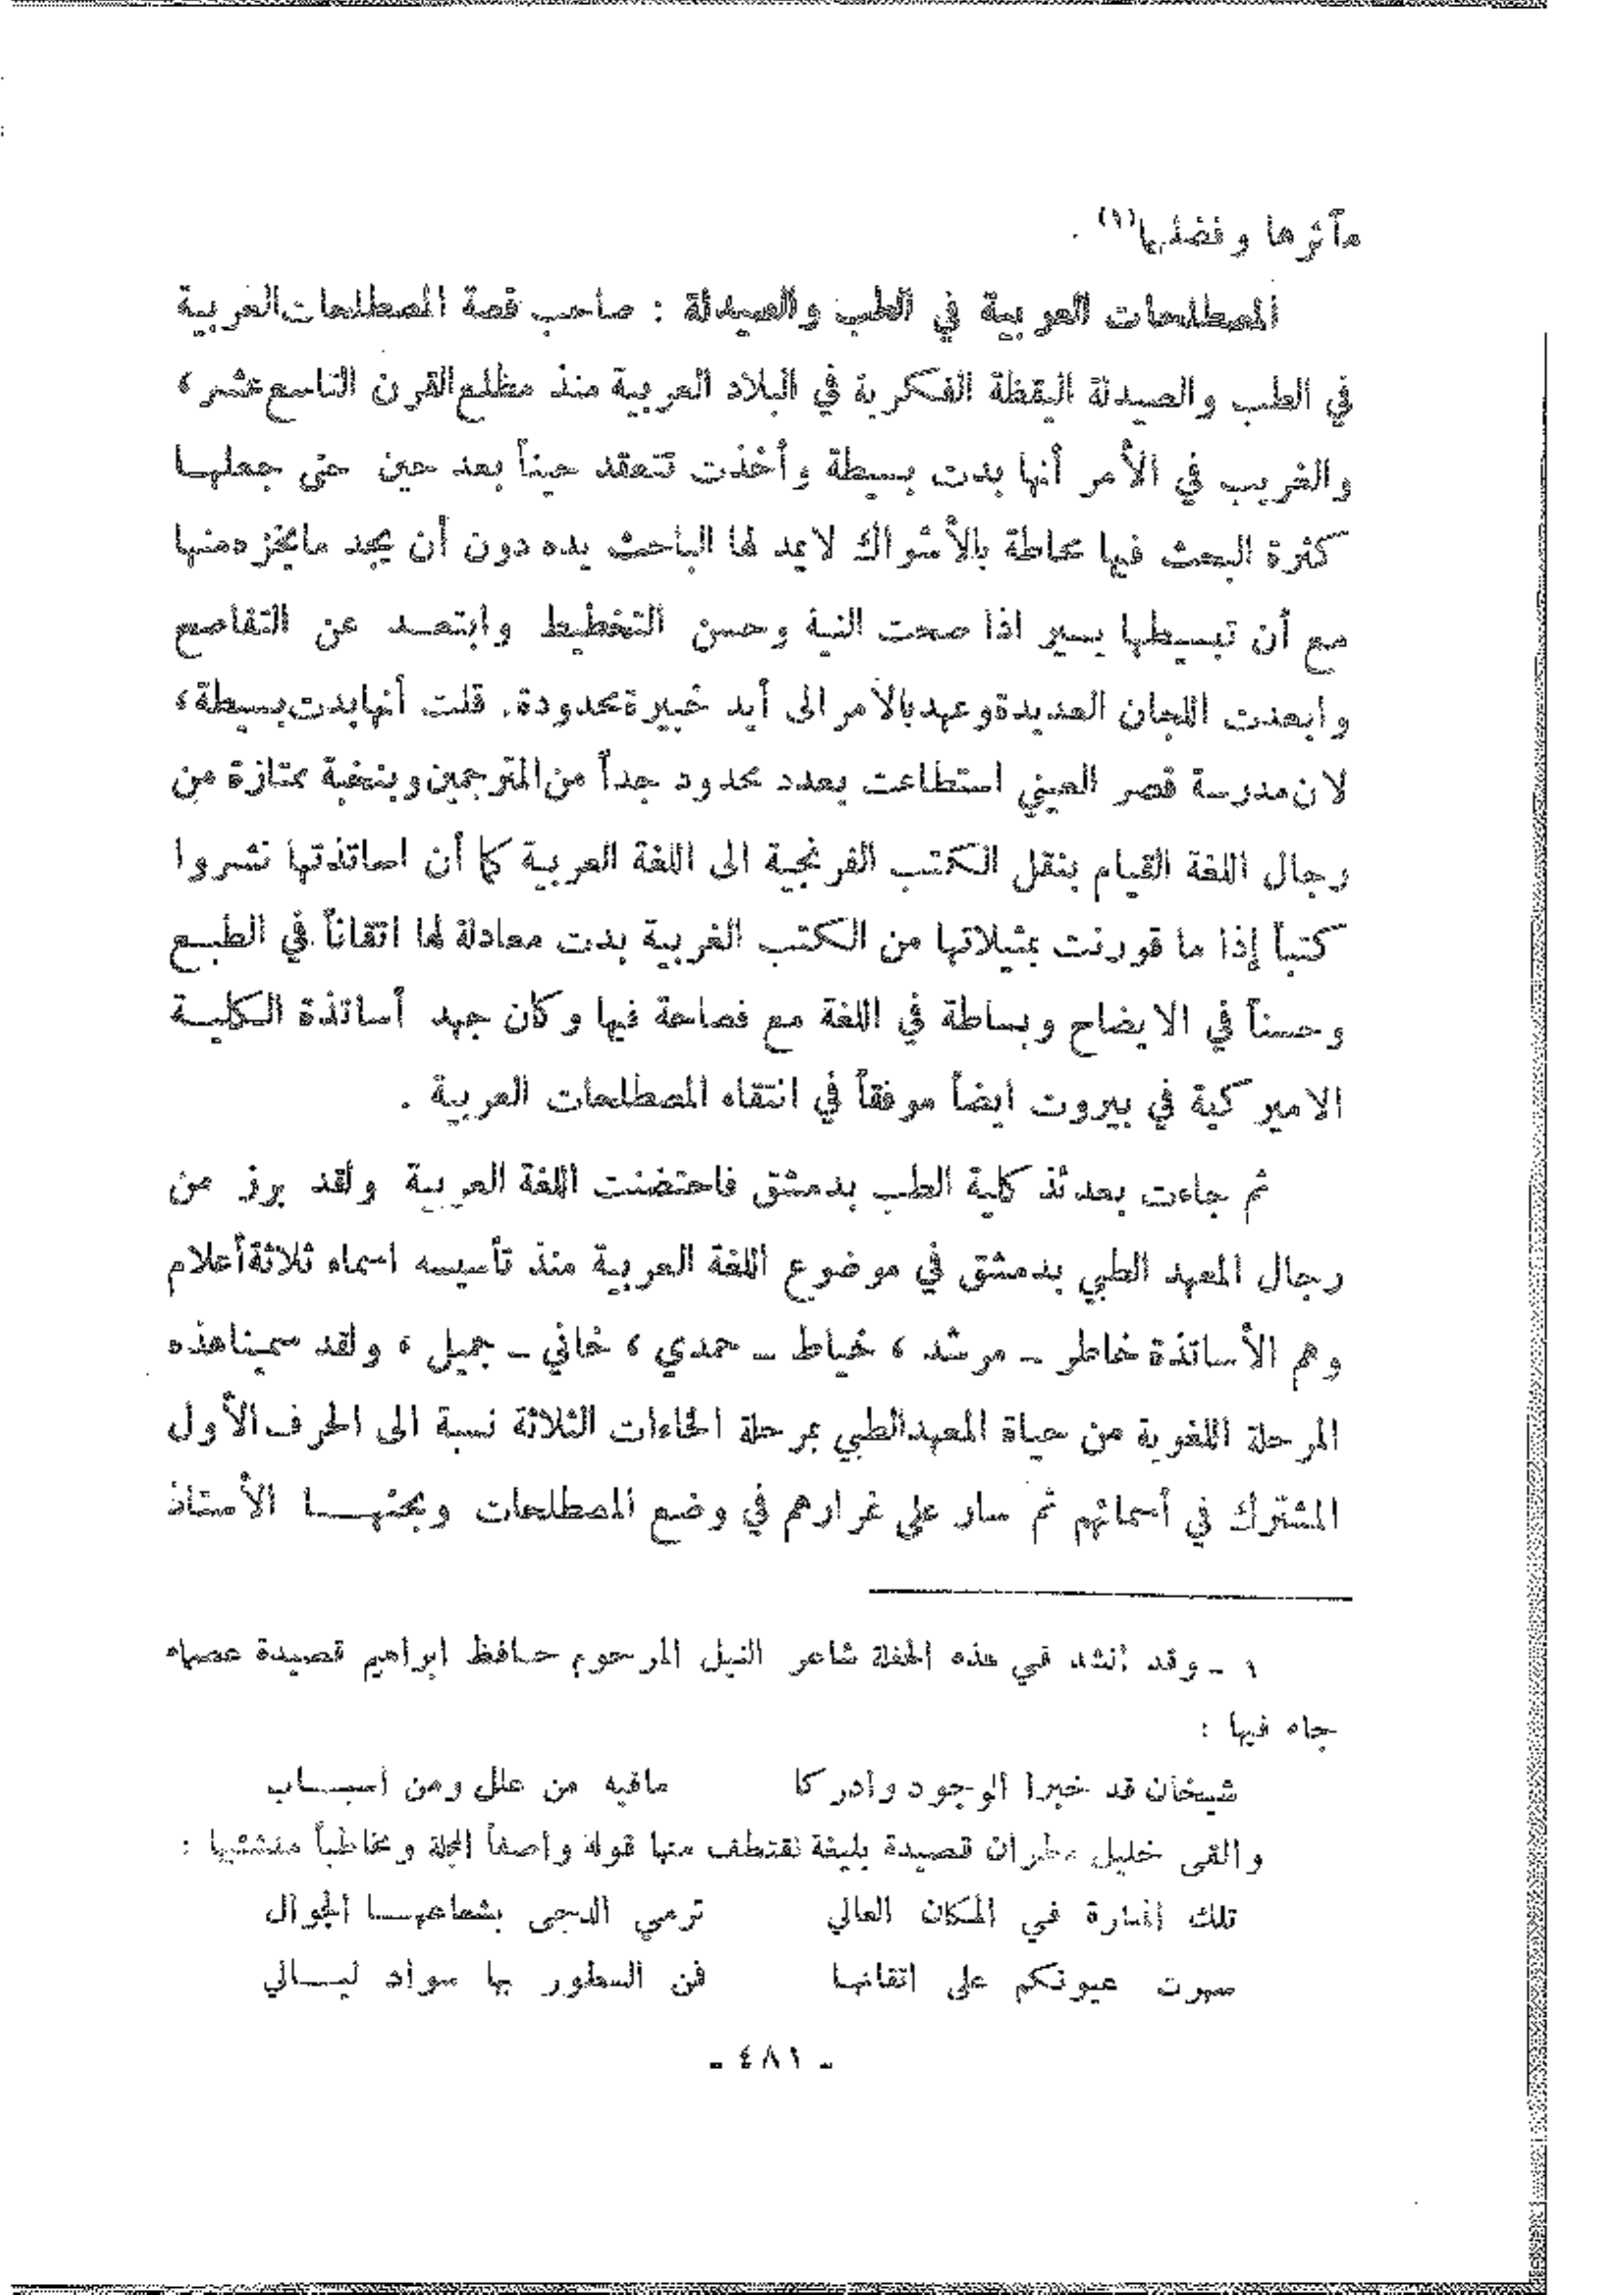 مآثرها وفضلها(١) .
المصطلحات العربية في الطب والصيدلة : صاحب قصة المصطلحات العربية
في الطب والصيدلة اليقظة الفكرية في البلاد العربية منذ مطلع القرن التاسع عشر ،
والغريب في الأمر أنها بدت بسيطة وأخذت تتعقد حيناً بعد حين حتى جعلهـا
كثرة البحث فيها محاطة بالأشواك لا يمد لها الباحث يده دون أن يجد ما يخزه منها
مع أن تبسيطها يسير اذا صحت النية وحسن التخطيط وابتعـد عن التفاصح
وابعدت اللجان العديدة وعهد بالأمر الى أيد خبيرة محدودة . قلت أنها بدت بسيطة ،
لان مدرسة قصر العيني استطاعت بعدد محدود جداً من المترجمين وبنخبة ممتازة من
رجال اللغة القيام بنقل الكتب الفرنجية الى اللغة العربية كما أن اساتذتها نشروا
كتباً إذا ما قورنت بمثيلاتها من الكتب الغربية بدت معادلة لها اتقاناً في الطبـع
وحسناً في الايضاح وبساطة في اللغة مع فصاحة فيها وكان جهد أساتذة الكليـة
الاميركية في بيروت ايضاً موفقاً في انتقاء المصطلحات العربية .
ثم جاءت بعدئذ كلية الطب بدمشق فاحتضنت اللغة العربية ولقد برز من
رجال المعهد الطبي بدمشق في موضوع اللغة العربية منذ تأسيسه اسماء ثلاثة أعلام
وهم الأساتذة خاطر ـ مرشد ، خياط ـ حمدي ، خاني ـ جميل ، ولقد سمينا هذه
المرحلة اللغوية من حياة المعهد الطبي بمرحلة الخاءات الثلاثة نسبة الى الحرف الأول
المشترك في أسمائهم ثم سار على غرارهم في وضع المصطلحات وبحثهـا الأستاذ
١ ـ وقد أنشد في هذه الحفلة شاعر النيل المرحوم حـافظ ابراهيم قصيدة عصماء
جاء فيها :
شيخان قد خبرا الوجود وأدركا مافيه من علل ومن أسبـاب
والقى خليل مطران قصيدة بليغة نقتطف منها قوله واصفاً المجلة ومخاطباً منشئيها :
تلك المنارة في المكان العالي ترمي الدجى بشعاعهـا الجوال
سهرت عيونكم على اتقانها فن السطور بها سواد ليـالي
ـ ٤٨١ ـ